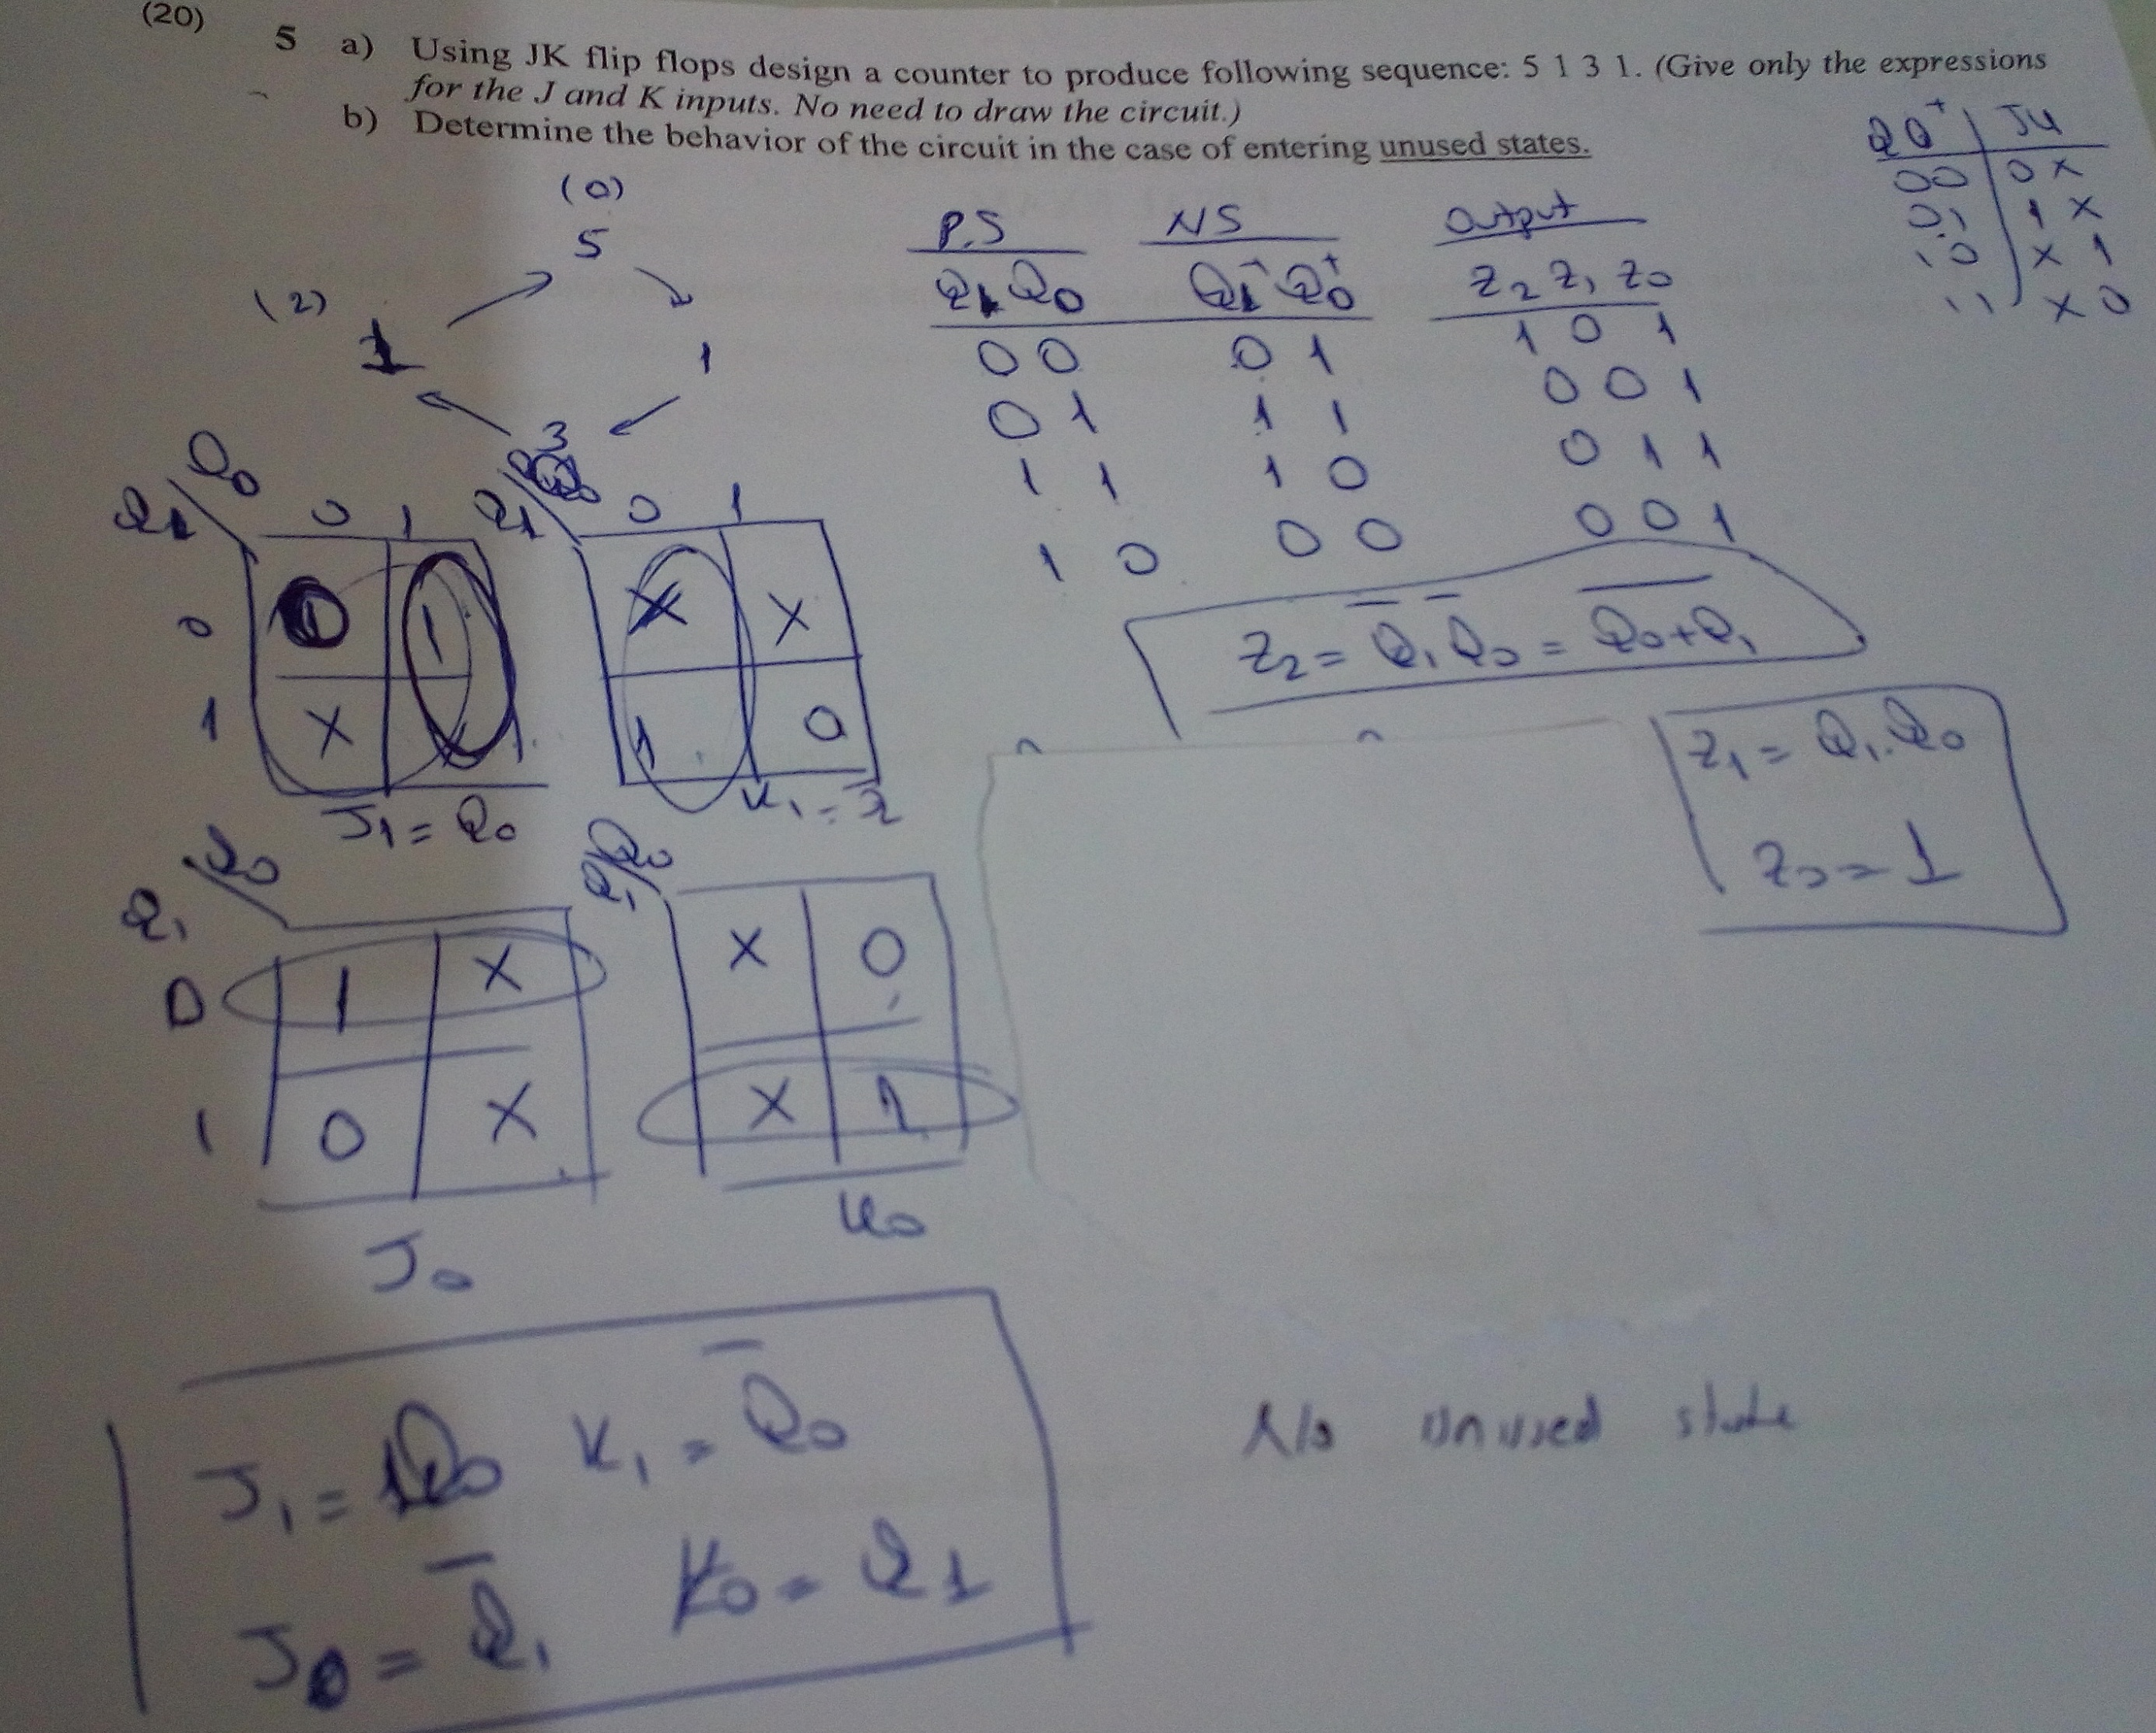 (20)
5 a) Using JK flip flops design a counter to produce following sequence: 5 1 3 1. (Give only the expressions
for the J and K inputs. No need to draw the circuit.)
b) Determine the behavior of the circuit in the case of entering unused states.
Q Q⁺ | J K
00 | 0 X
01 | 1 X
10 | X 1
11 | X 0
(0)
5
(2)
1
1
3
P.S NS Output
Q₁ Q₀ Q₁⁺ Q₀⁺ Z₂ Z₁ Z₀
0 0 0 1 1 0 1
0 1 1 1 0 0 1
1 1 1 0 0 1 1
1 0 0 0 0 0 1
Z₂ = Q̅₁ Q̅₀ = \overline{Q₀+Q₁}
Z₁ = Q₁.Q₀
Z₀ = 1
Q₀
Q₁ 0 1
0 0 1
1 X X
J₁ = Q₀
Q₁ 0 1
X X
1 0
K₁ =
Q₀
Q₁
0 1 X
1 0 X
J₀
Q₀
Q₁
X 0
X 1
K₀
J₁ = Q₀ K₁ = Q̅₀
J₀ = Q̅₁ K₀ = Q₁
No unused state